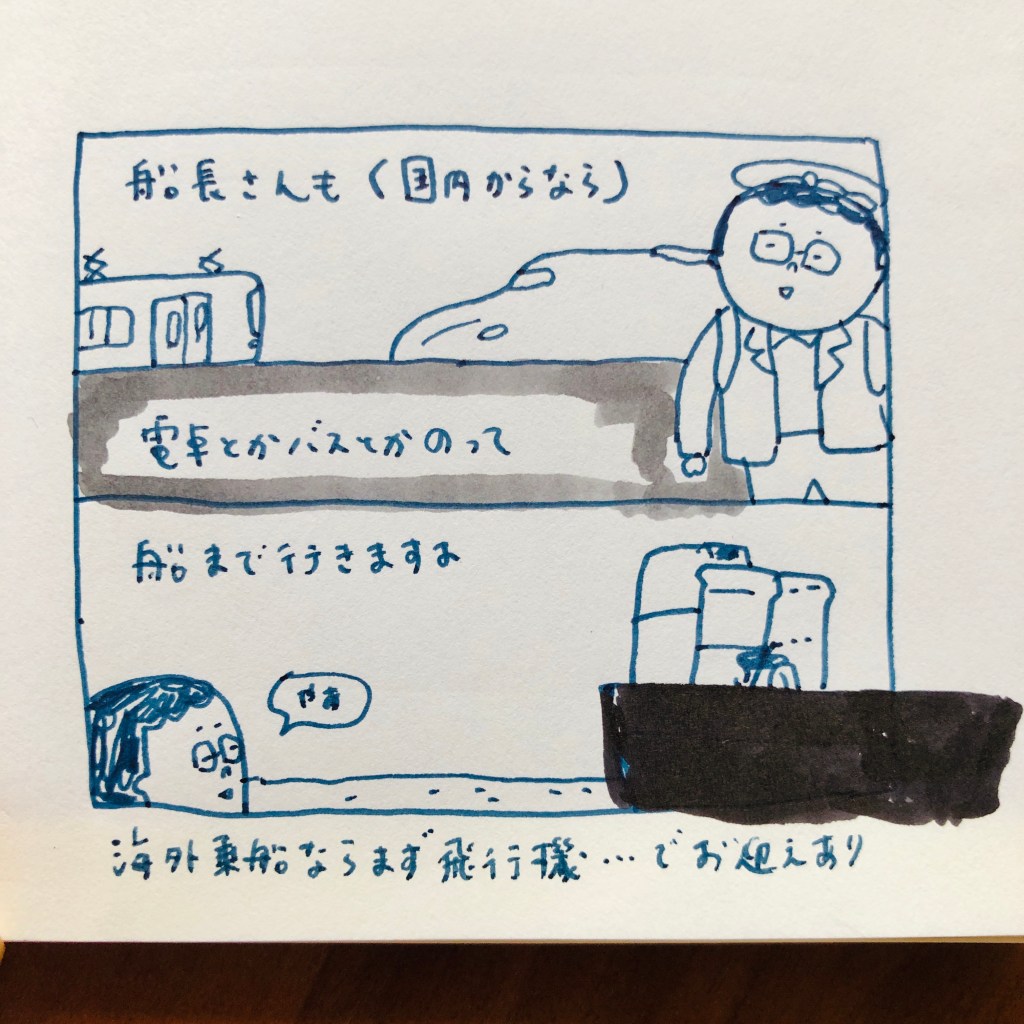 船長さんも（国内からなら）
電車とかバスとかのって
船まで行きますよ
やあ
海外乗船ならまず飛行機…でお迎えあり